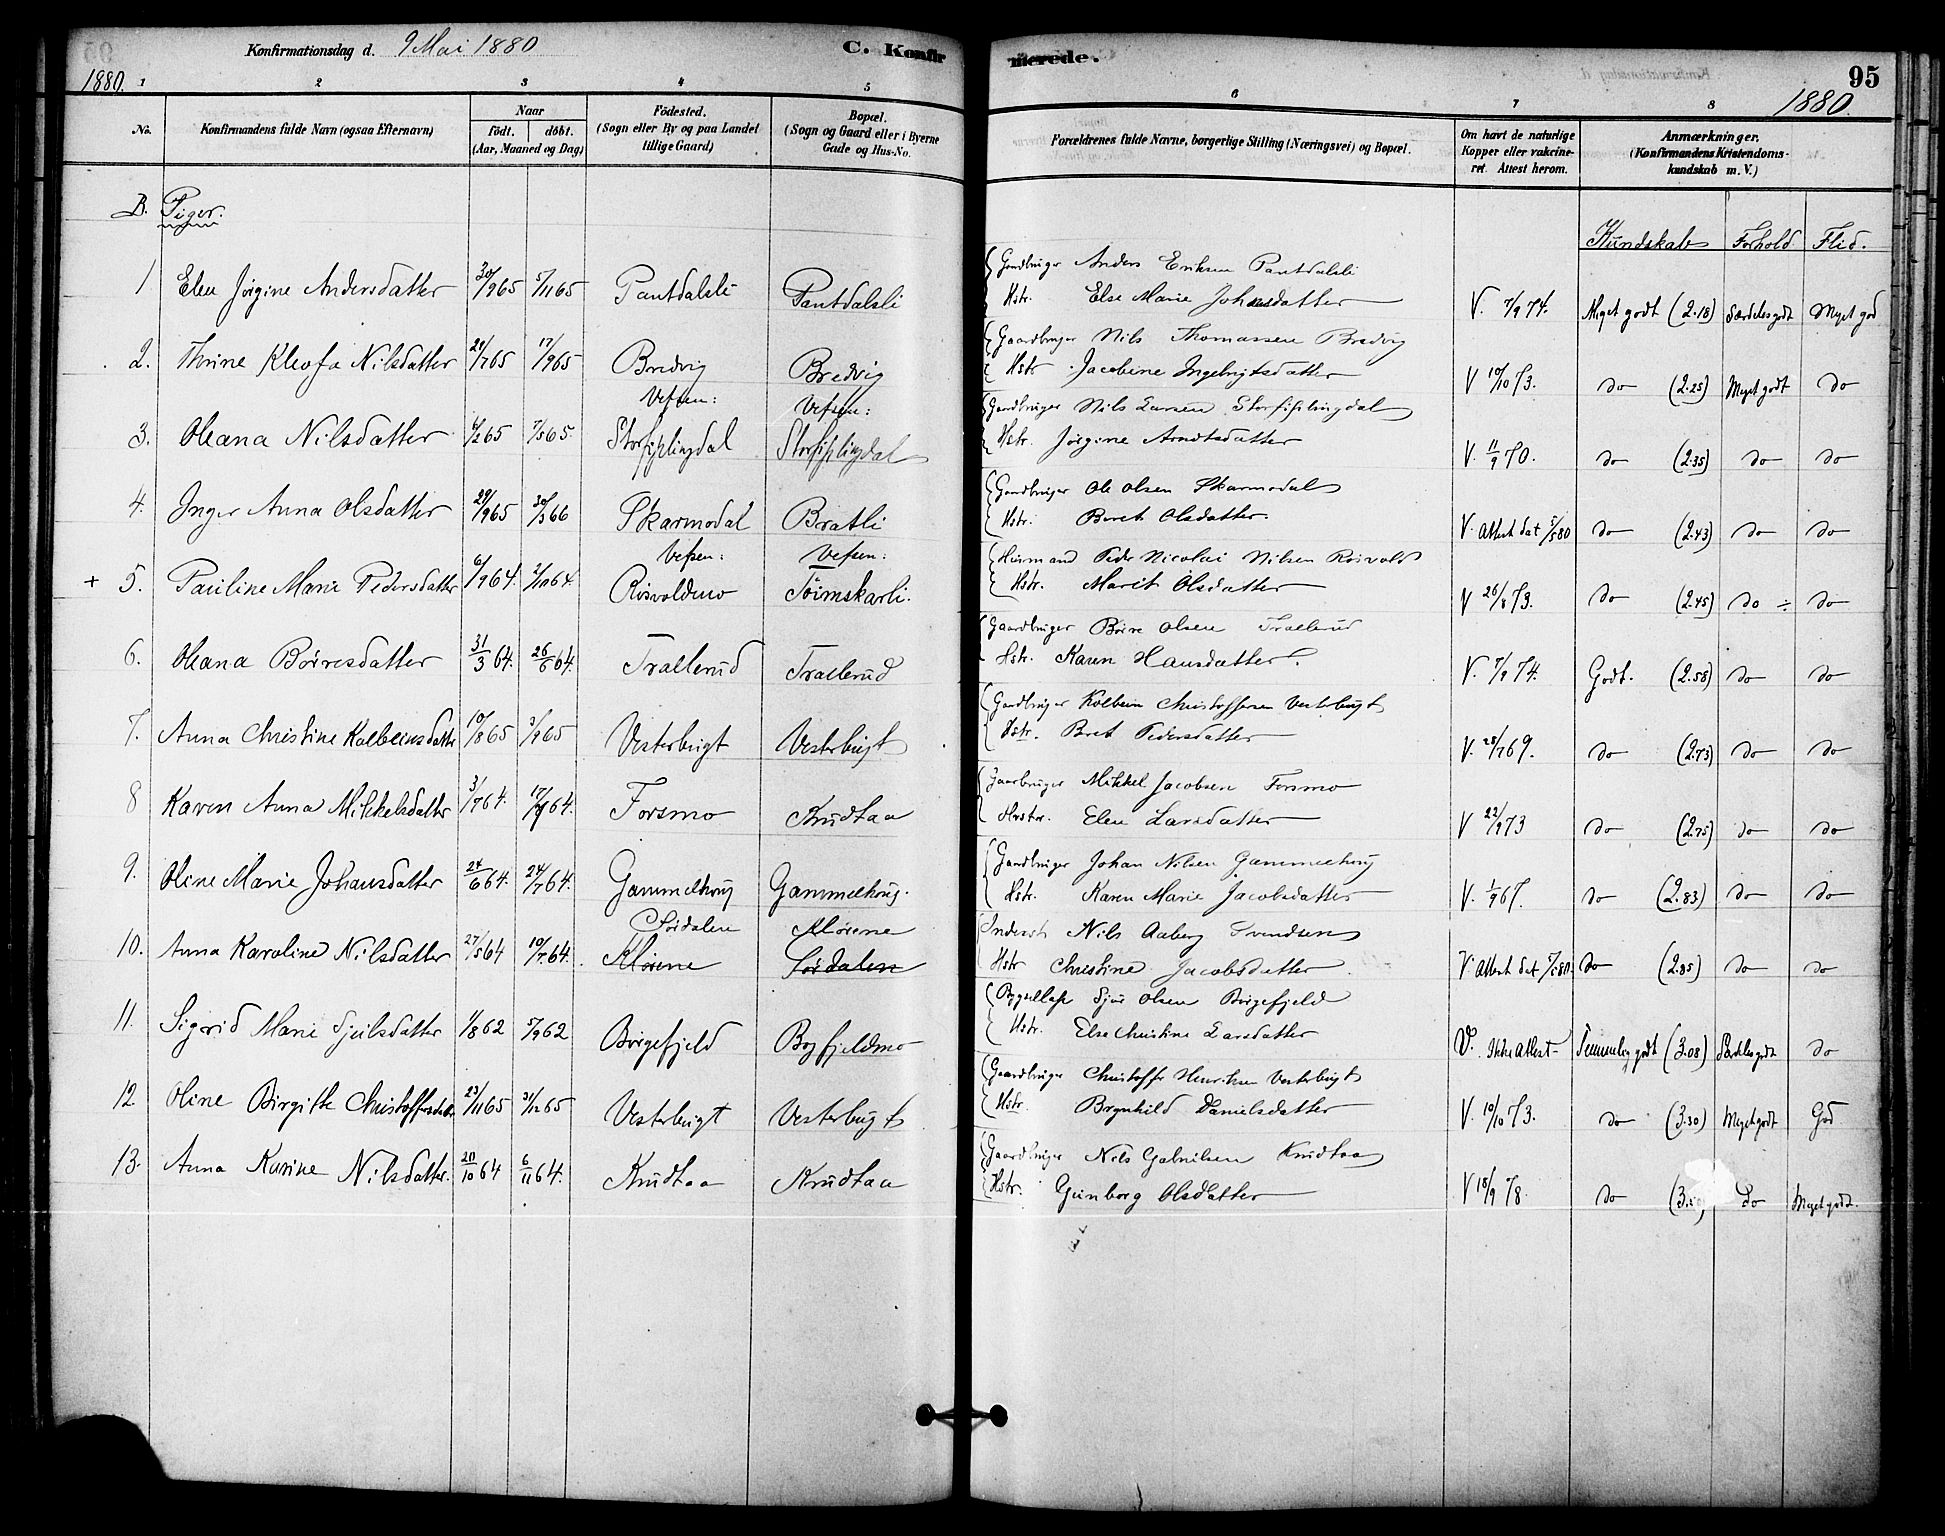 Konfirmationsdag d. 9 Mai 1880
C. Konfirmerede.
95
1880.
1880.
1 2 3 4 5 6 7 8
No.
Konfirmandens fulde Navn (ogsaa Efternavn)
Naar
födt. döbt.
(Aar, Maaned og Dag)
Födested.
(Sogn eller By og paa Landet
tillige Gaard)
Bopæl.
(Sogn og Gaard eller i Byerne
Gade og Hus-No.
Forældrenes fulde Navne, borgerlige Stilling (Næringsvei) og Bopæl.
Om havt de naturlige
Kopper eller vakcine-
ret. Attest herom.
Anmærkninger.
(Konfirmandens Kristendoms-
kundskab m. V.)
B. Piger.
Kundskab Forhold Flid.
1 Elen Jörgine Andersdatter 30/9 65 5/11 65 Pantdalsli Pantdalsli
Gaardbruger Anders Eriksen Pantdalsli
Hstr. Else Marie Johnsdatter V. 7/9 74. Meget godt (2.18) Særdeles godt Meget god
2. Thrine Kleofa Nilsdatter 21/7 65 17/9 65 Bredvig Bredvig
Gaardbruger Nils Thomassen Bredvig
Hstr Jacobine Ingebrigtsdatter V 10/10 73. do (2.25) Meget godt do
Vefsen: Vefsen:
3. Oleana Nilsdatter 6/2 65 7/5 65. Storfiplingdal Storfiplingdal
Gaardbruger Nils Larsen Storfiplingdal
Hstr. Jörgine Arntsdatter V. 11/9 70. do (2.35) do do
4. Inger Anna Olsdatter 29/9 65 30/3 66 Skarmodal Bratli
Gaardbruger Ole Olsen Skarmodal
Hstr. Beret Olsdatter. V. Attest dat 5/5 80 do (2.43) do do
Vefsen: Vefsen:
+ 5. Pauline Marie Pedersdatter 6/9 64. 2/10 64. Rösvoldmo Töimskarli.
Huusmand Peder Nicolai Nilsen Rösvold
Hstr. Marit Olsdatter V 26/8 73. do (2.45) do ÷ do
6. Oleana Börresdatter 31/3 64. 26/6 64. Trallerud Trallerud
Gaardbruger Börre Olsen Trallerud
Hstr. Karen Hansdatter. V. 7/9 74. Godt. (2.58) do do
7. Anna Christine Kolbeensdatter 10/8 65 3/9 65 Vesterbugt Vesterbugt
Gaardbruger Kolbein Christoffersen Vesterbugt
Hstr. Beret Pedersdatter V. 25/7 69. do (2.73) do do
8 Karen Anna Mikkelsdatter 3/7 64. 17/9 64. Forsmo Knudtaa
Gaardbruger Mikkel Jacobsen Forsmo
Hustr. Elen Larsdatter V 22/9 73 do (2.75) do do
9. Oline Marie Johansdatter 24/6 64. 24/7 64. Gammelhoug Gammelhoug.
Gaardbruger Johan Nilsen Gammelhoug
Hstr. Karen Marie Jacobsdatter V. 1/9 67. do (2.83) do do
Sördalen Mörene
10. Anna Karoline Nilsdatter 27/5 64 10/7 64. Mörene Sördalen
Inderst Nils Aaberg Svendsen
Hstr Christine Jacobsdatter V Attest dat 7/5 80. do (2.85) do do
11. Sigrid Marie Sjulsdatter 1/8 62 5/9 62 Börgefjeld Bogfjeldmo
Sjul Olsen Börgefjeld
Hstr. Else Christine Larsdatter V. Ikke attest Temmelig godt (3.08) Særdeles godt do
12 Oline Birgitte Christoffersdatter 23/11 65 31/12 65 Vesterbugt Vesterbugt
Gaardbruger Christoffer Henriksen Vesterbugt
Hstr. Brynhild Danielsdatter V. 10/10 73. do (3.30) Meget godt God
13. Anna Karine Nilsdatter. 20/10 64 6/11 64. Knudtaa Knudtaa
Gaardbruger Nils Gabrielsen Knudtaa
Hstr. Gunborg Olsdatter V 18/9 78 do do Meget godt.